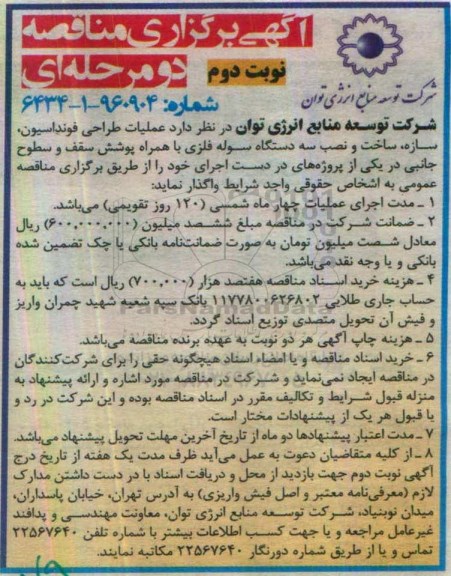 آگهی برگزاری مناقصه
دو مرحله‌ای
نوبت دوم
شرکت توسعه منابع انرژی توان
شماره: ۹۶۰۹۰۴-۱-۶۴۳۴
شرکت توسعه منابع انرژی توان در نظر دارد عملیات طراحی فونداسیون،
سازه، ساخت و نصب سه دستگاه سوله فلزی با همراه پوشش سقف و سطوح
جانبی در یکی از پروژه‌های در دست اجرای خود را از طریق برگزاری مناقصه
عمومی به اشخاص حقوقی واجد شرایط واگذار نماید:
۱ ـ مدت اجرای عملیات چهار ماه شمسی (۱۲۰ روز تقویمی) می‌باشد.
۲ ـ ضمانت شرکت در مناقصه مبلغ ششصد میلیون (۶۰۰,۰۰۰,۰۰۰) ریال
معادل شصت میلیون تومان به صورت ضمانت‌نامه بانکی یا چک تضمین شده
بانکی و یا وجه نقد می‌باشد.
۴ ـ هزینه خرید اسناد مناقصه هفتصد هزار (۷۰۰,۰۰۰) ریال است که باید به
حساب جاری طلایی ۱۱۷۷۸۰۰۶۲۶۸۰۲ بانک سپه شعبه شهید چمران واریز
و فیش آن تحویل متصدی توزیع اسناد گردد.
۵ ـ هزینه چاپ آگهی هر دو نوبت به عهده برنده مناقصه می‌باشد.
۶ ـ خرید اسناد مناقصه و یا امضاء اسناد هیچگونه حقی را برای شرکت‌کنندگان
در مناقصه ایجاد نمی‌نماید و شرکت در مناقصه مورد اشاره و ارائه پیشنهاد به
منزله قبول شرایط و تکالیف مقرر در اسناد مناقصه بوده و این شرکت در رد و
یا قبول هر یک از پیشنهادات مختار است.
۷ ـ مدت اعتبار پیشنهادها دو ماه از تاریخ آخرین مهلت تحویل پیشنهاد می‌باشد.
۸ ـ از کلیه متقاضیان دعوت به عمل می‌آید ظرف مدت یک هفته از تاریخ درج
آگهی نوبت دوم جهت بازدید از محل و دریافت اسناد با در دست داشتن مدارک
لازم (معرفی‌نامه معتبر و اصل فیش واریزی) به آدرس تهران، خیابان پاسداران،
میدان نوبنیاد، شرکت توسعه منابع انرژی توان، معاونت مهندسی و پدافند
غیرعامل مراجعه و یا جهت کسب اطلاعات بیشتر با شماره تلفن ۲۲۵۶۷۶۴۰
تماس و یا از طریق شماره دورنگار ۲۲۵۶۷۶۴۰ مکاتبه نمایند.